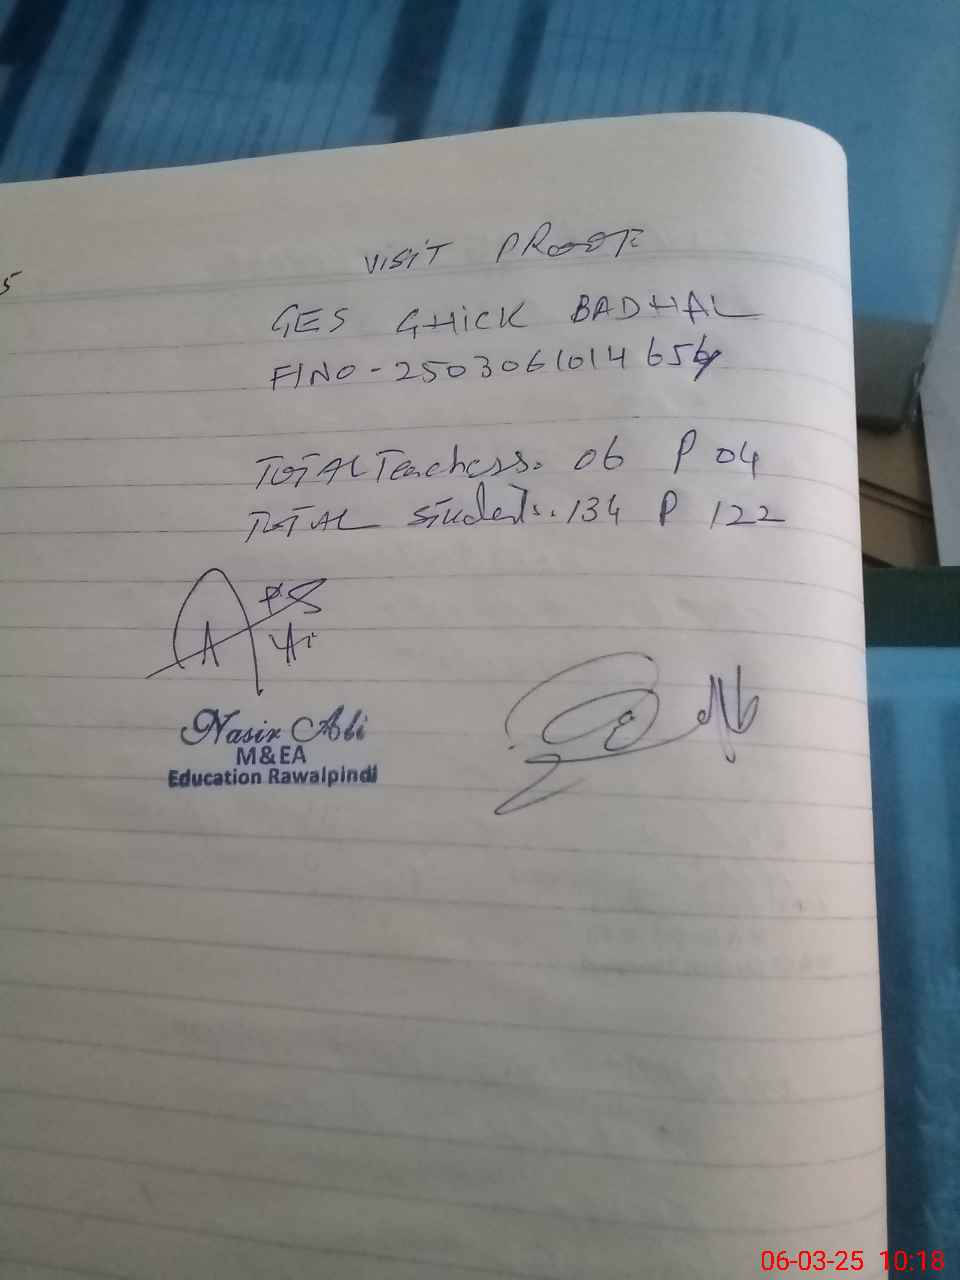 5
VISIT PROOF
GES GHICK BADHAL
FINO - 2503061014656
TOTAL Teachers. 06 P 04
TOTAL Students. 134 P 122
Nasir Ali
M&EA
Education Rawalpindi
06-03-25 10:18